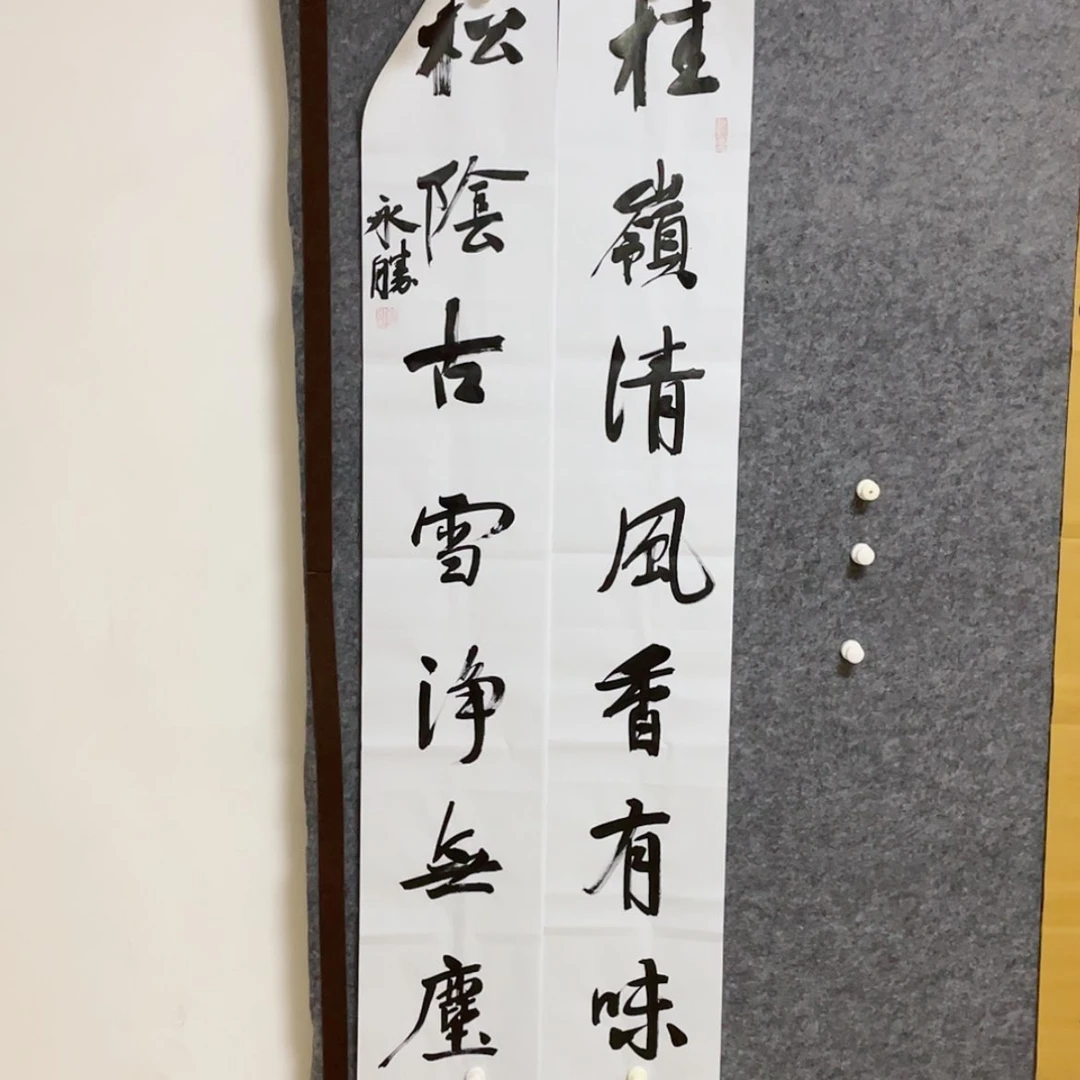 桂嶺清風香有味
松陰古雪淨無塵
永勝